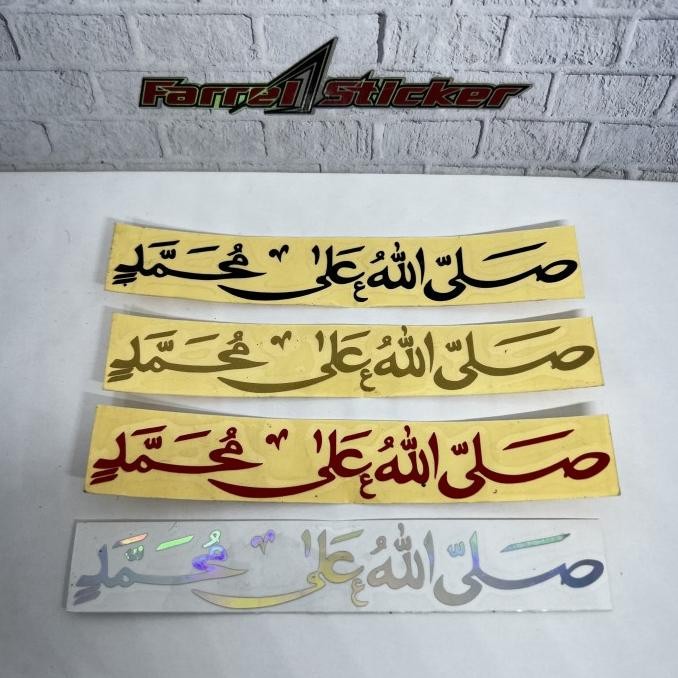 Farrel Sticker
صَلىّ اللهُ عَلىٰ مُحَمَّدٍ
صَلىّ اللهُ عَلىٰ مُحَمَّدٍ
صَلىّ اللهُ عَلىٰ مُحَمَّدٍ
صَلىّ اللهُ عَلىٰ مُحَمَّدٍ